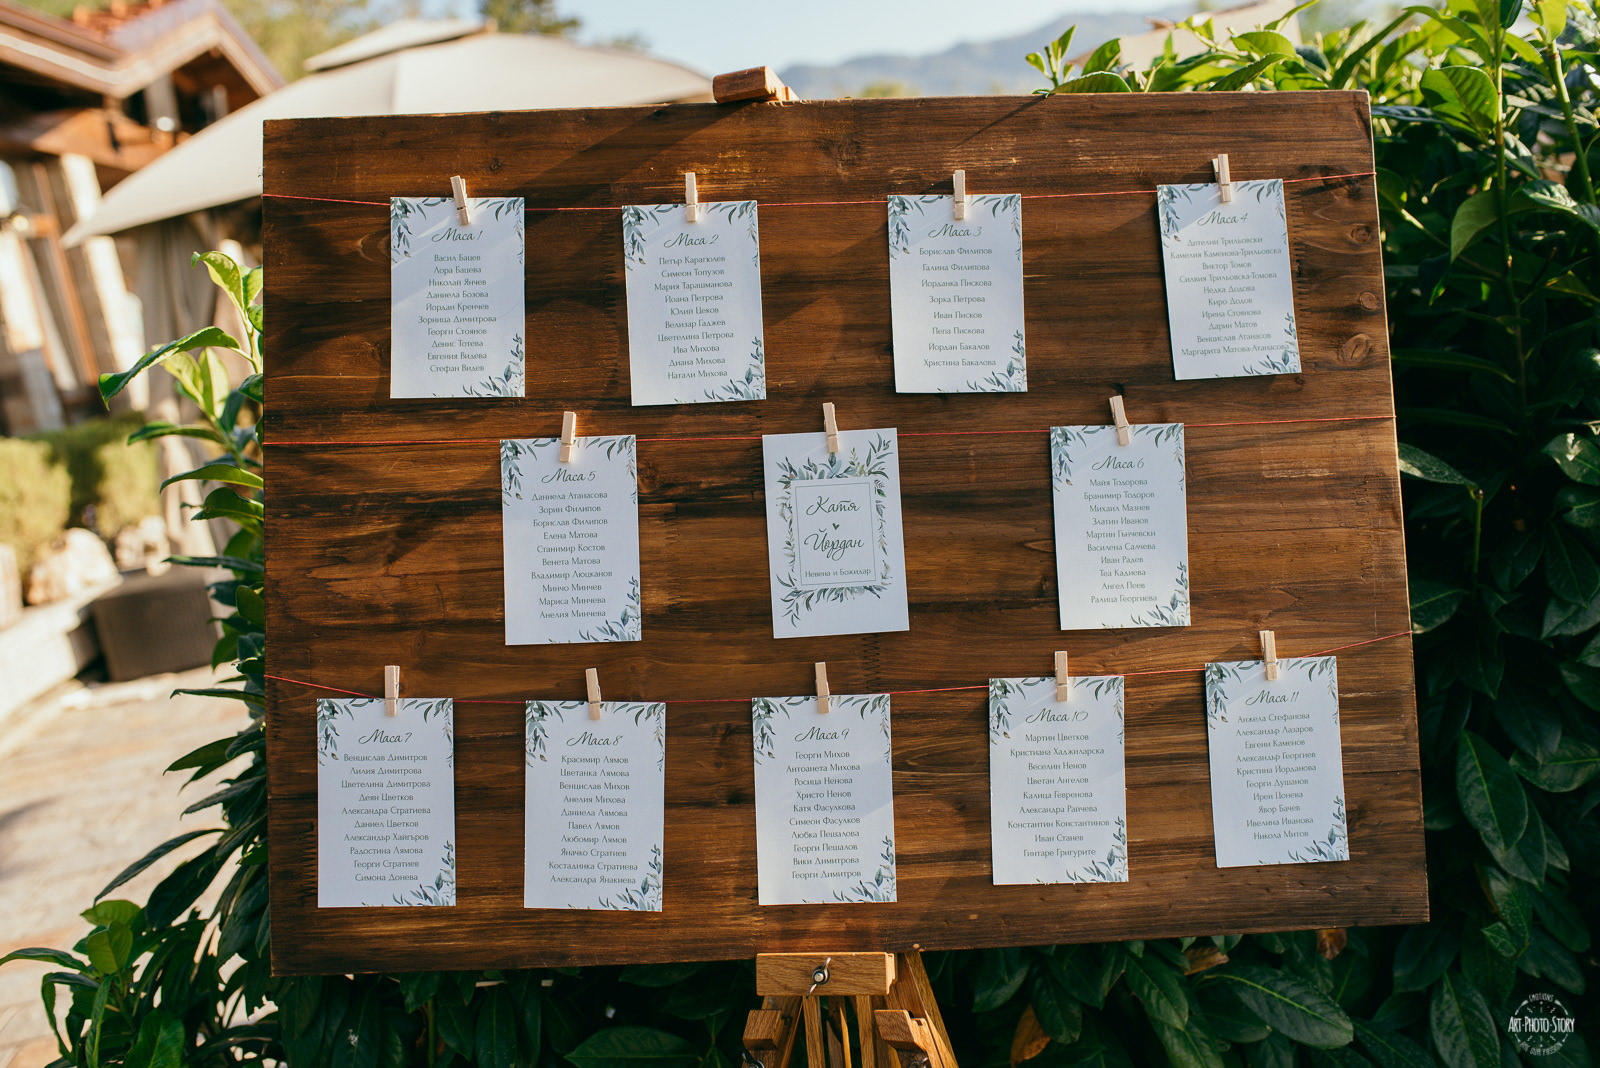 Маса 1
Васил Бацев
Лора Бацева
Николай Янчев
Даниела Бозова
Йордан Кренчев
Зорница Димитрова
Георги Стоянов
Денис Тотева
Евгения Видева
Стефан Видев
Маса 2
Петър Карагюлев
Симеон Топузов
Мария Тарашманова
Йоана Петрова
Юлий Цеков
Велизар Гаджев
Цветелина Петрова
Ива Михова
Диана Михова
Натали Михова
Маса 3
Борислав Филипов
Галина Филипова
Йорданка Пискова
Зорка Петрова
Иван Писков
Пепа Пискова
Йордан Бакалов
Христина Бакалова
Маса 4
Дителин Трильовски
Камелия Каменова-Трильовска
Виктор Томов
Силвия Трильовска-Томова
Недка Додова
Киро Додов
Ирена Стоянова
Дарин Матов
Венцислав Атанасов
Маргарита Матова-Атанасова
Маса 5
Даниела Атанасова
Зорин Филипов
Борислав Филипов
Елена Матова
Станимир Костов
Венета Матова
Владимир Люцканов
Минчо Минчев
Мариса Минчева
Анелия Минчева
Катя
Йордан
Невена и Божидар
Маса 6
Майя Тодорова
Бранимир Тодоров
Михаил Мазнев
Златин Иванов
Мартин Гънчевски
Василена Салчева
Иван Радев
Теа Кадиева
Ангел Пеев
Ралица Георгиева
Маса 7
Венцислав Димитров
Лилия Димитрова
Цветелина Димитрова
Деян Цветков
Александра Стратиева
Даниел Цветков
Александър Хайгъров
Радостина Лямова
Георги Стратиев
Симона Донева
Маса 8
Красимир Лямов
Цветанка Лямова
Венцислав Михов
Анелия Михова
Даниела Лямова
Павел Лямов
Любомир Лямов
Яначко Стратиев
Костадинка Стратиева
Александра Янакиева
Маса 9
Георги Михов
Антоанета Михова
Росица Ненова
Христо Ненов
Катя Фасулкова
Симеон Фасулков
Любка Пешалова
Георги Пешалов
Вики Димитрова
Георги Димитров
Маса 10
Мартин Цветков
Кристиана Хаджиларска
Веселин Ненов
Цветан Ангелов
Калица Гевренова
Александра Рангчева
Константин Константинов
Иван Станев
Гинтаре Григурите
Маса 11
Анжела Стефанова
Александър Лазаров
Евгени Каменов
Александър Георгиев
Кристина Йорданова
Георги Душанов
Ирен Цонева
Явор Бачев
Ивелина Иванова
Никола Митов
EMOTIONS
ART·PHOTO·STORY
ARE OUR PASSION